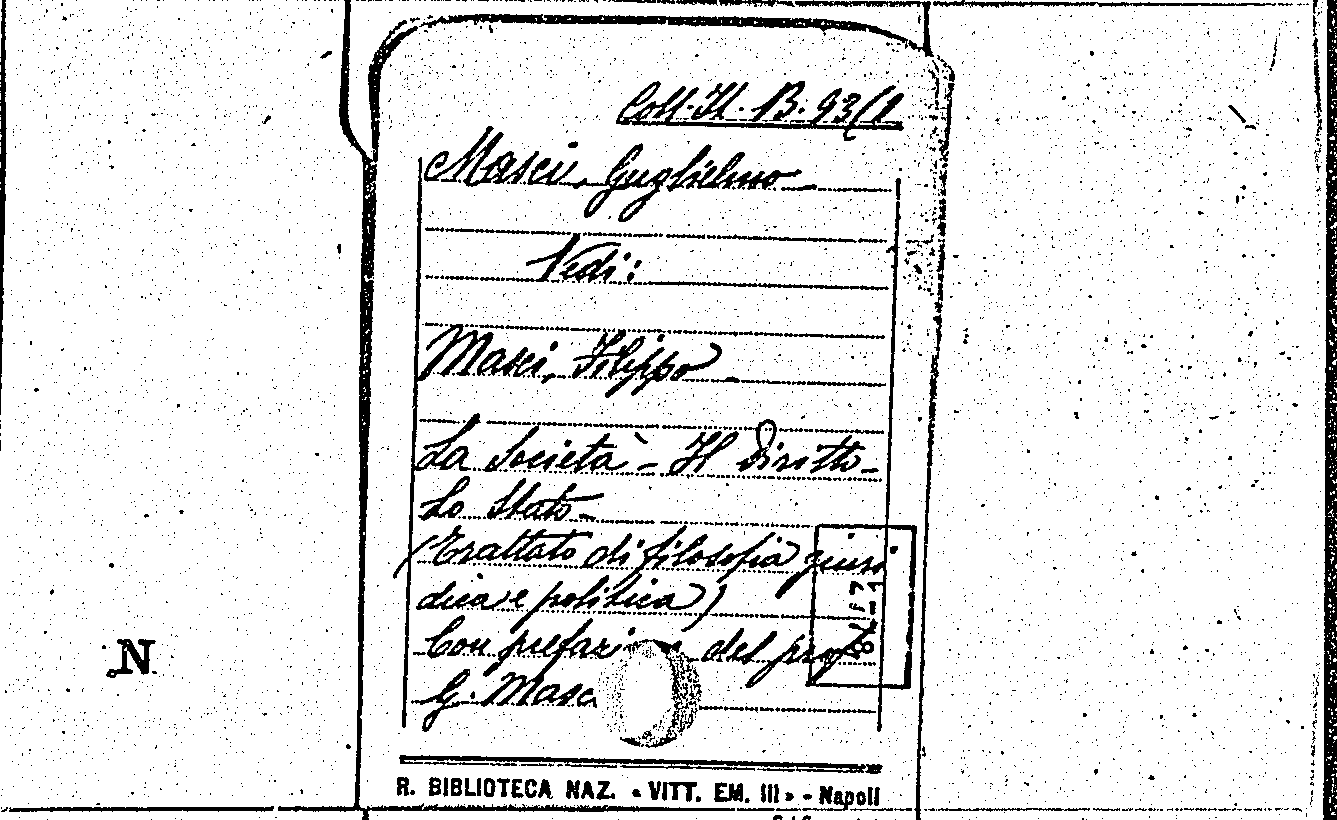 Coll. It. B. 93/1
Masci, Guglielmo -
Vedi:
Masci, Filippo -
La Società - Il Diritto -
Lo Stato -
(Trattato di filosofia giuri
dica e politica)
Con prefazi del prof.
G. Masc
R. BIBLIOTECA NAZ. « VITT. EM. III » - Napoli
N